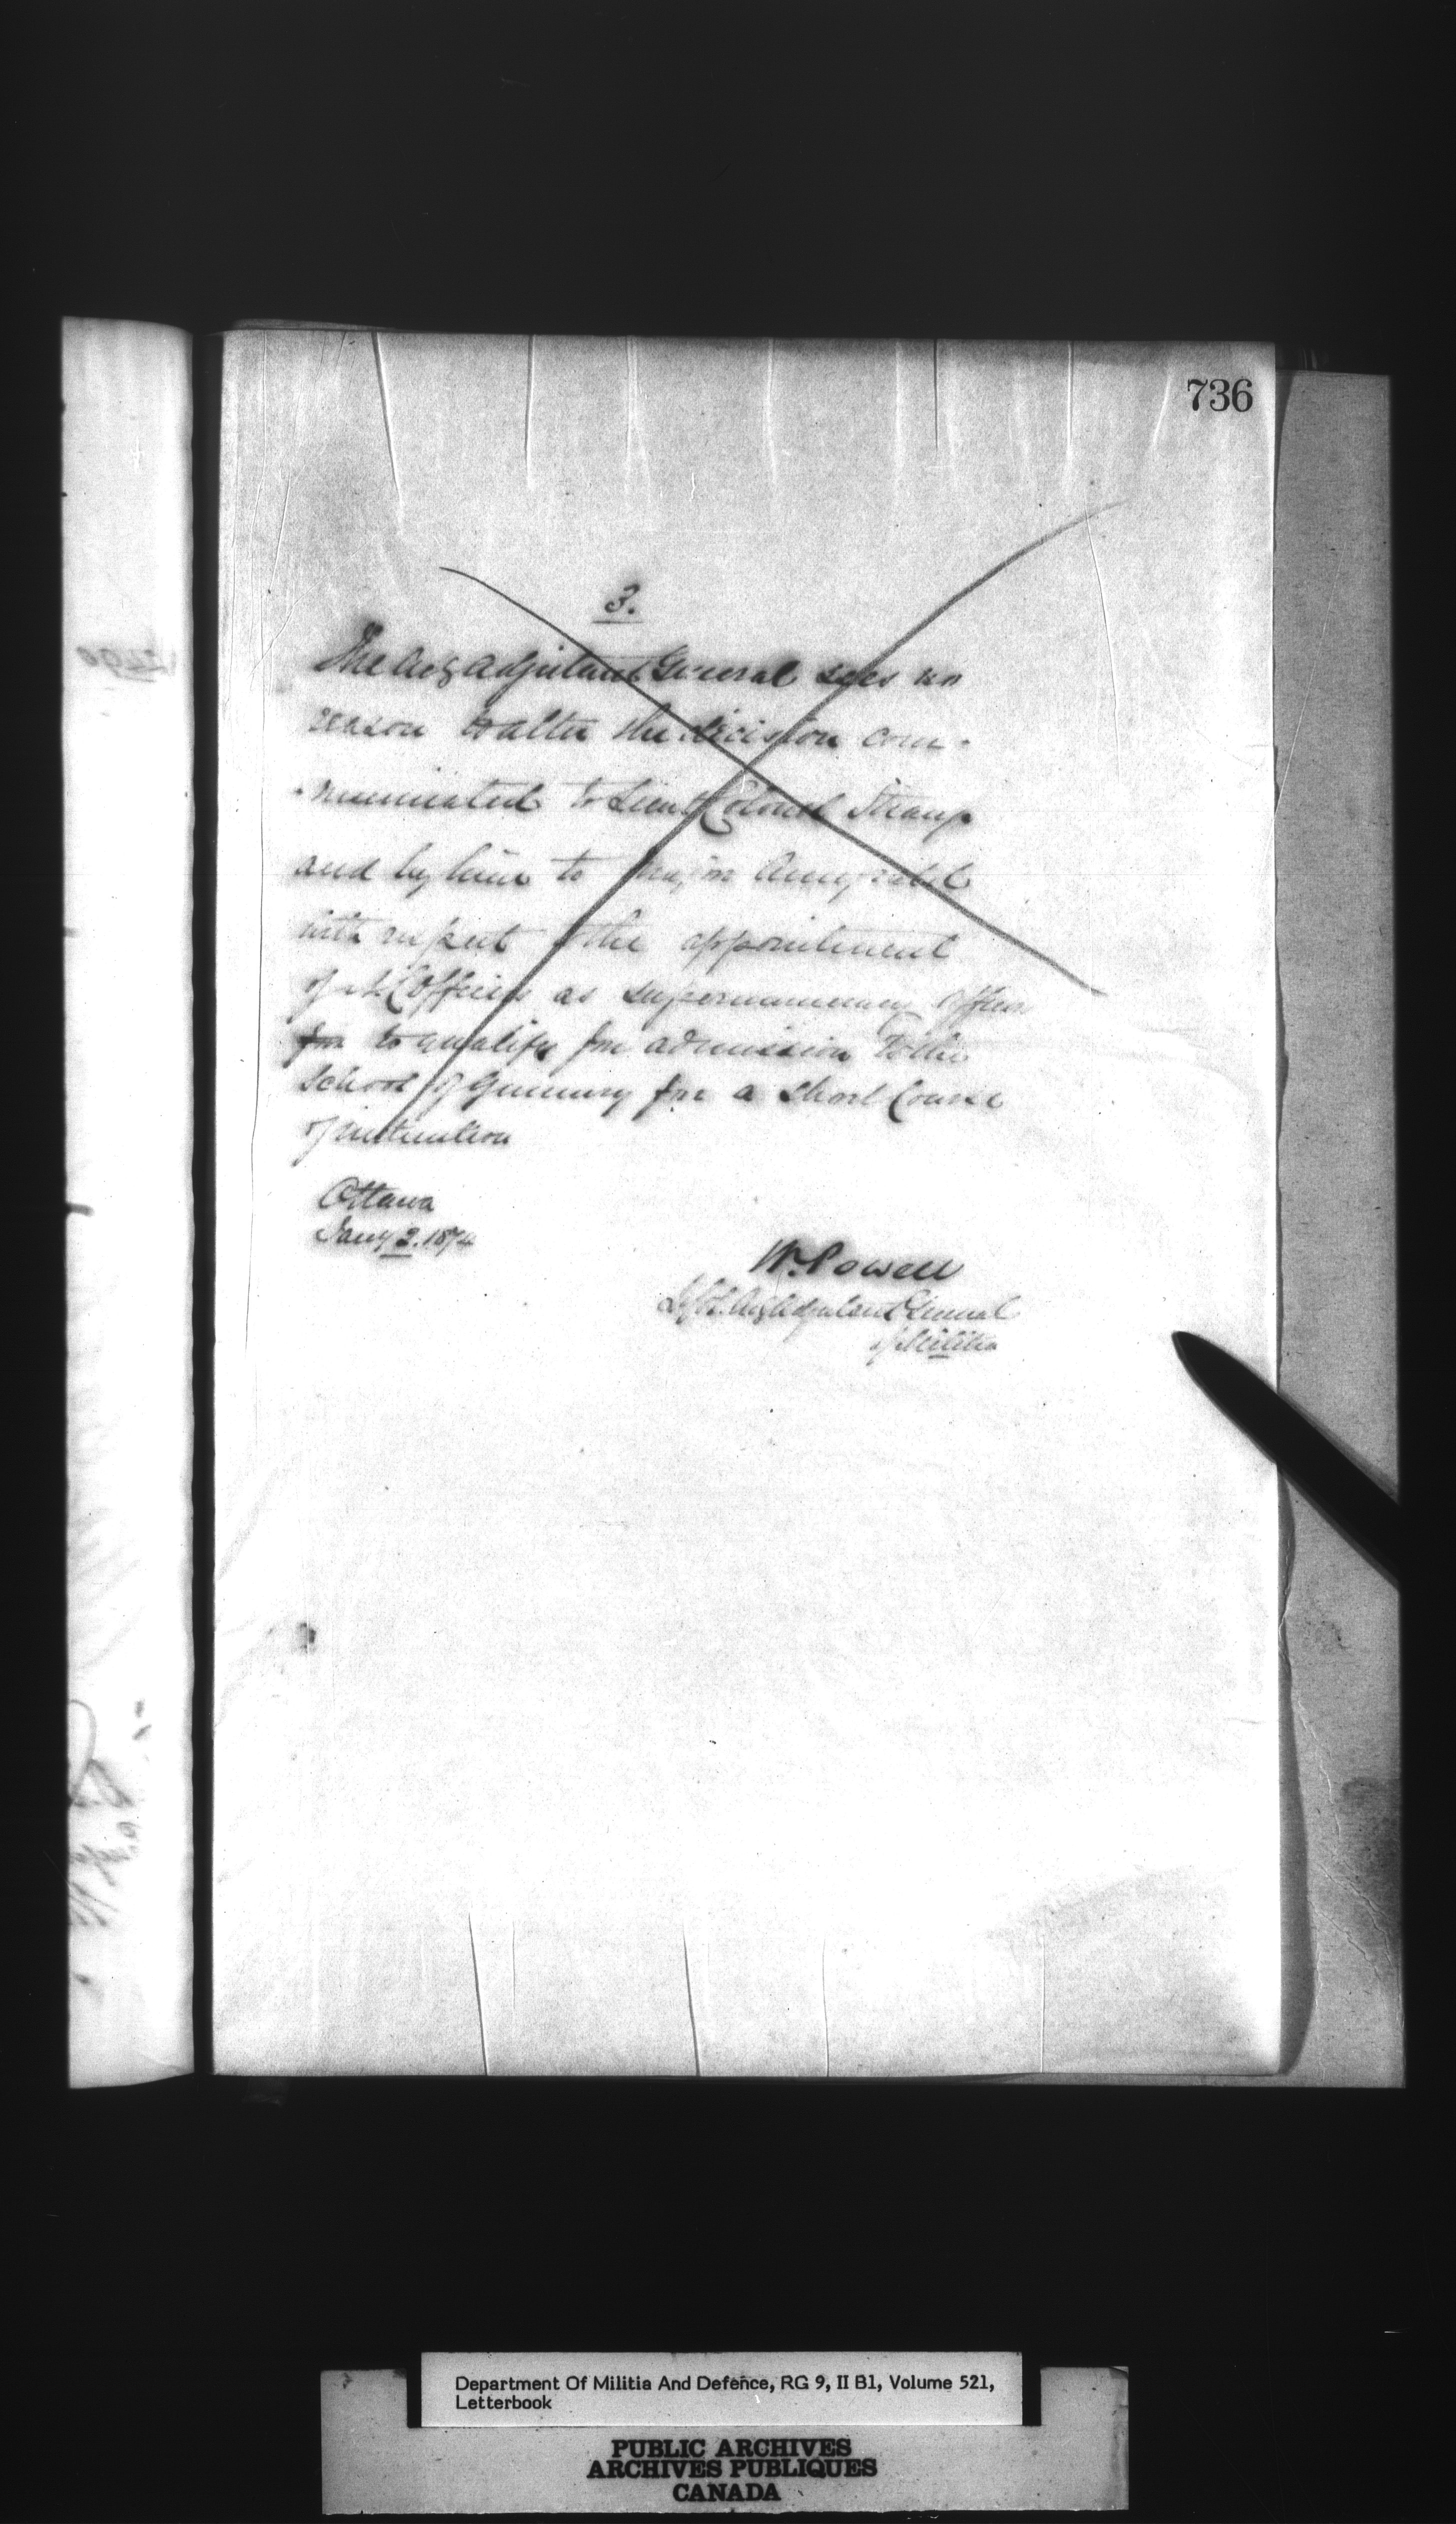 736
3.
The Actg Adjutant General sees no
reason to alter the decision com-
-municated to Lieut Colonel Strange
and by him to Major Amyrauld
with respect to the appointment
of N.C. Officers as supernumerary officers
for to qualify for admission to the
School of Gunnery for a short Course
of instruction
Ottawa
Jany 2. 1874
W. Powell
Lt Col. Actg Adjutant General
of Militia
Department Of Militia And Defence, RG 9, II B1, Volume 521,
Letterbook
PUBLIC ARCHIVES
ARCHIVES PUBLIQUES
CANADA